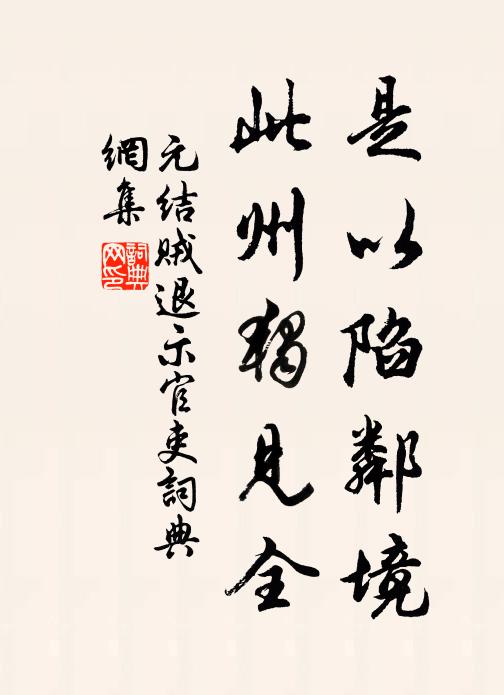 是以陷鄰境
此州獨見全
元结賊退示官吏詞典
網集
詞典
网印